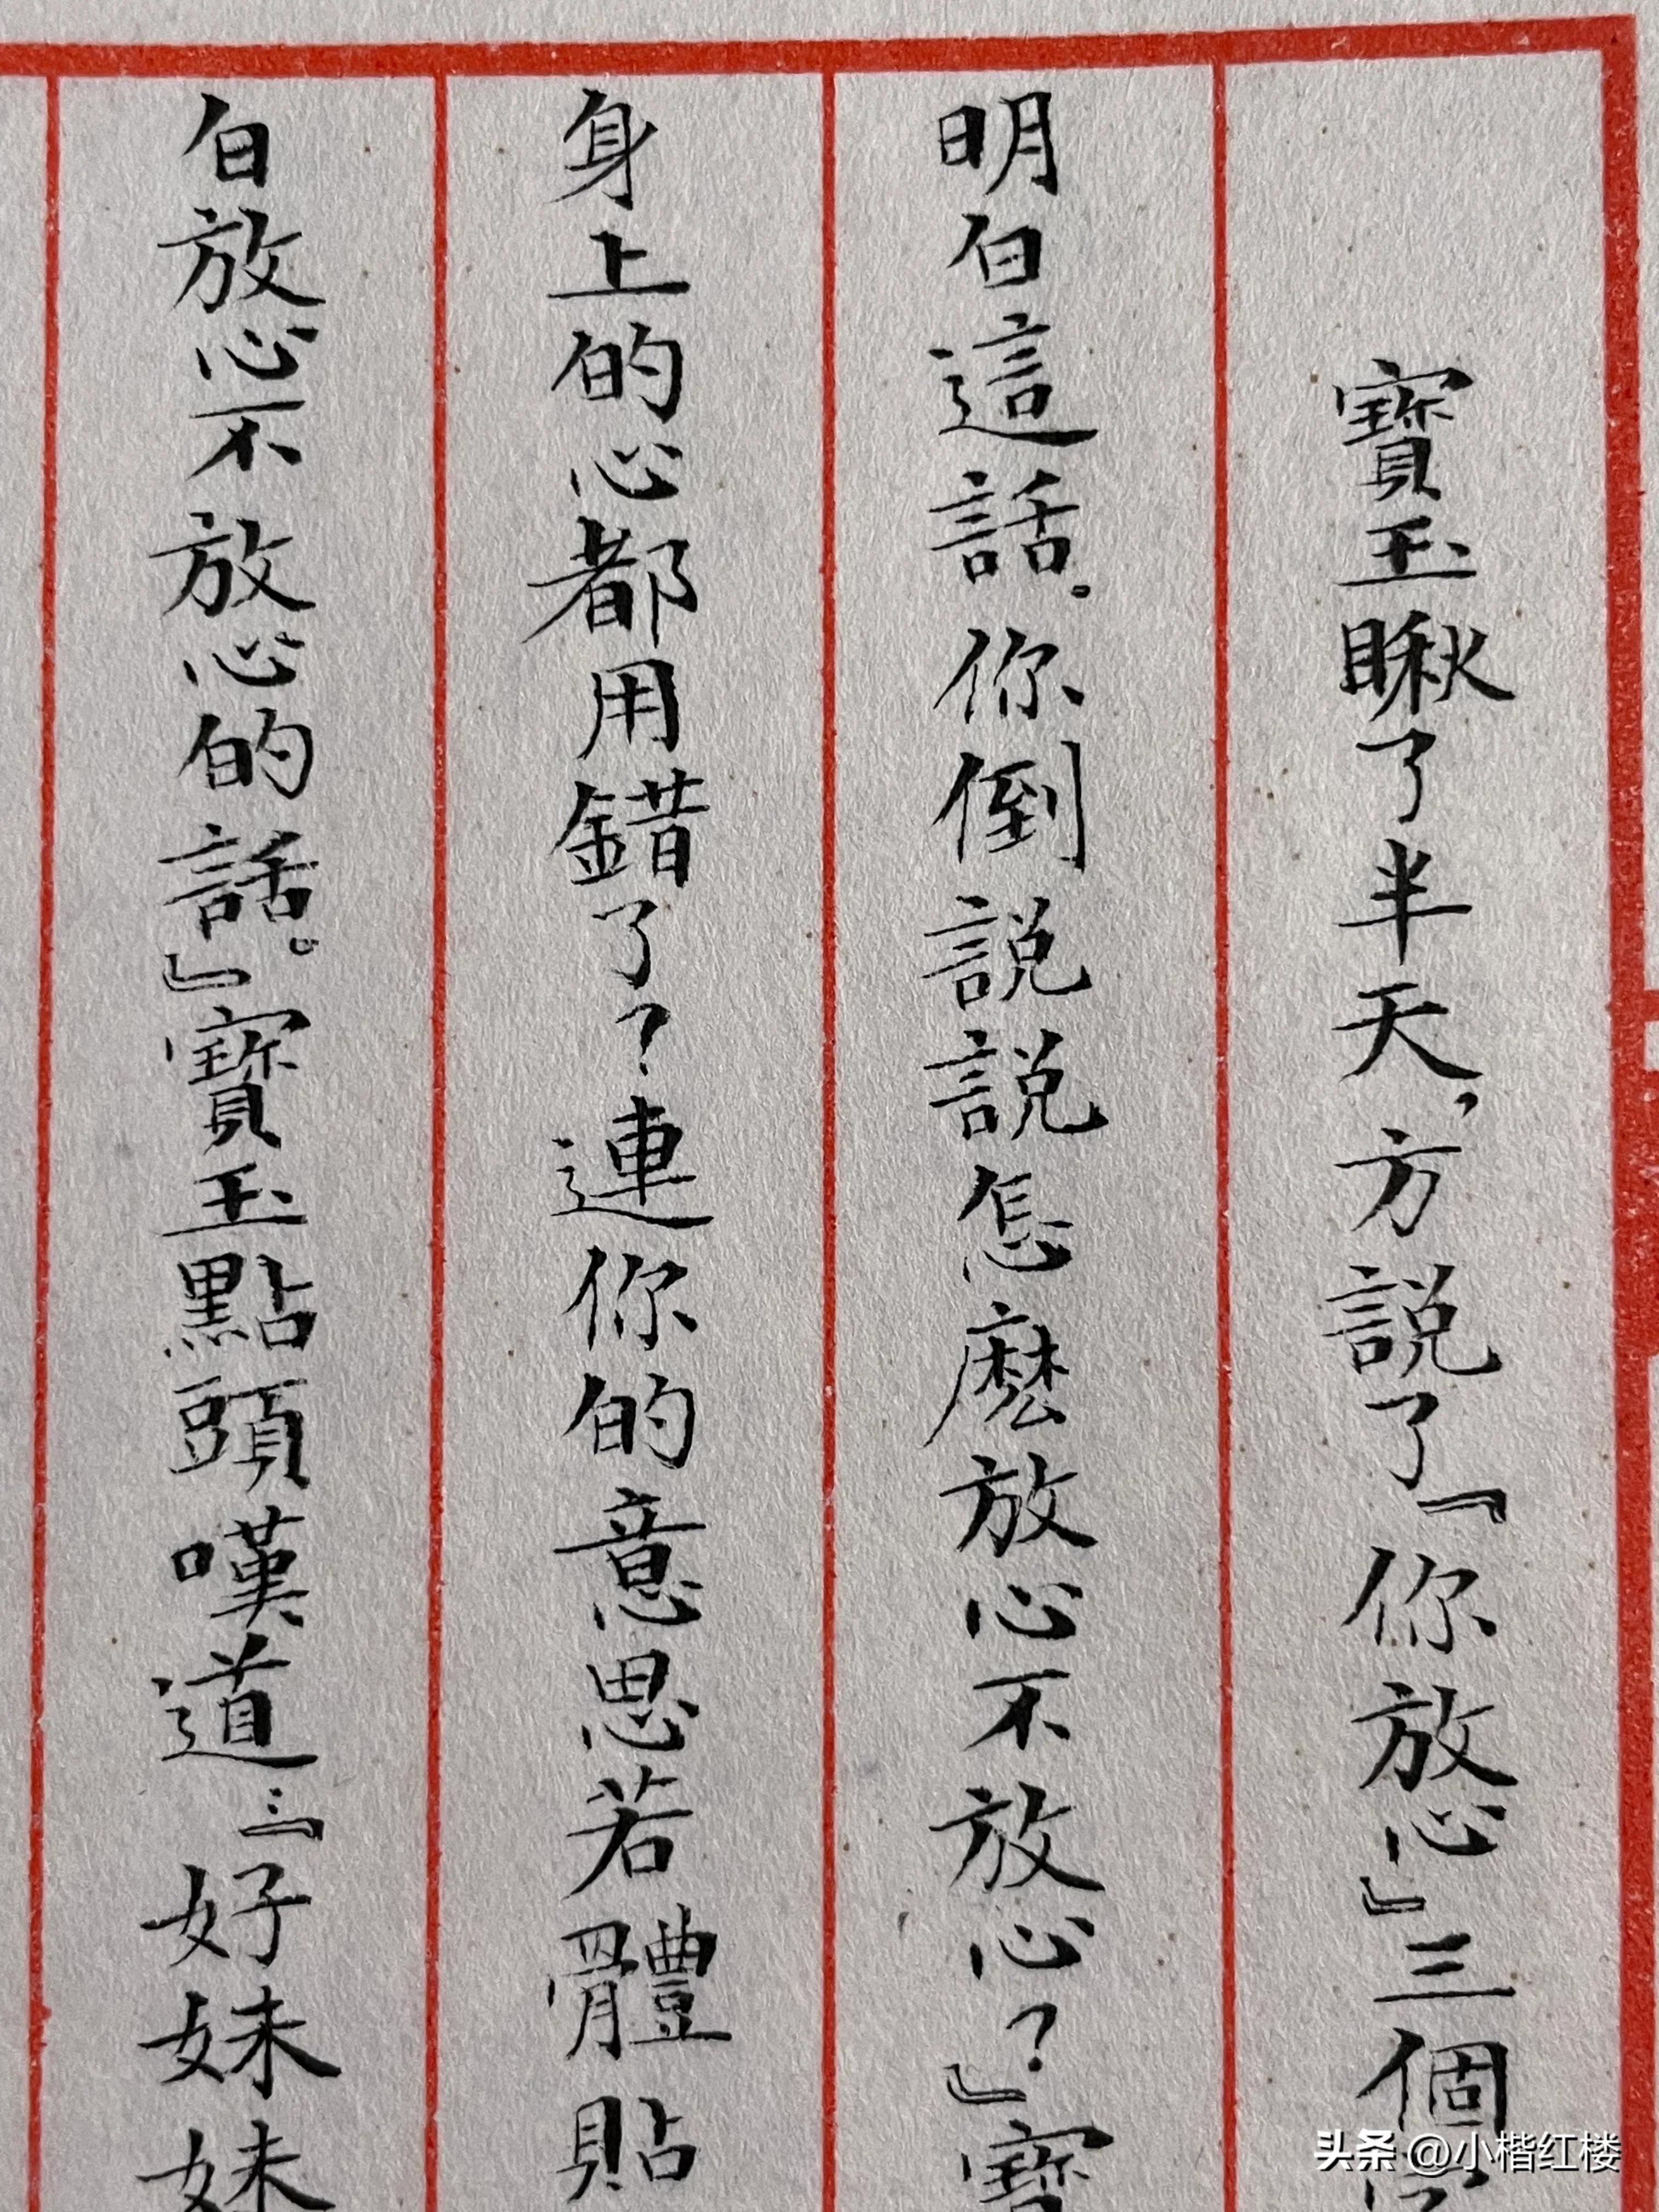 寶玉瞅了半天，方説了『你放心』三個
明白這話。你倒説説怎麽放心不放心？』寶
身上的心都用錯了？連你的意思若體貼
白放心不放心的話。』寶玉點頭嘆道：『好妹妹
头条 @小楷红楼